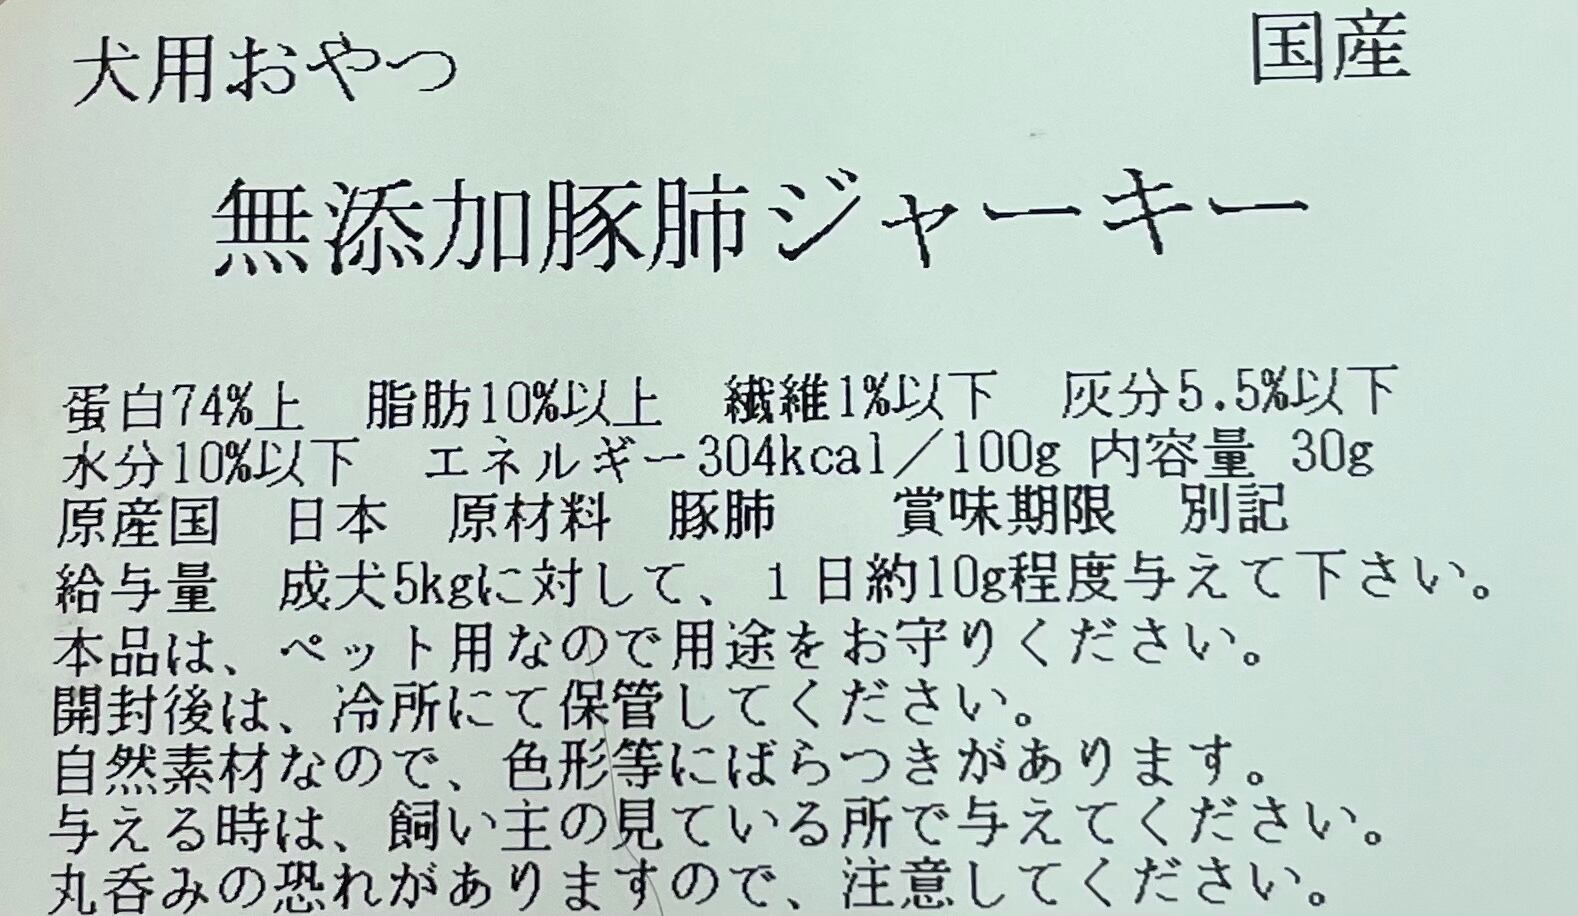 犬用おやつ 国産
無添加豚肺ジャーキー
蛋白74%上 脂肪10%以上 繊維1%以下 灰分5.5%以下
水分10%以下 エネルギー304kcal／100g 内容量 30g
原産国 日本 原材料 豚肺 賞味期限 別記
給与量 成犬5kgに対して、１日約10g程度与えて下さい。
本品は、ペット用なので用途をお守りください。
開封後は、冷所にて保管してください。
自然素材なので、色形等にばらつきがあります。
与える時は、飼い主の見ている所で与えてください。
丸呑みの恐れがありますので、注意してください。